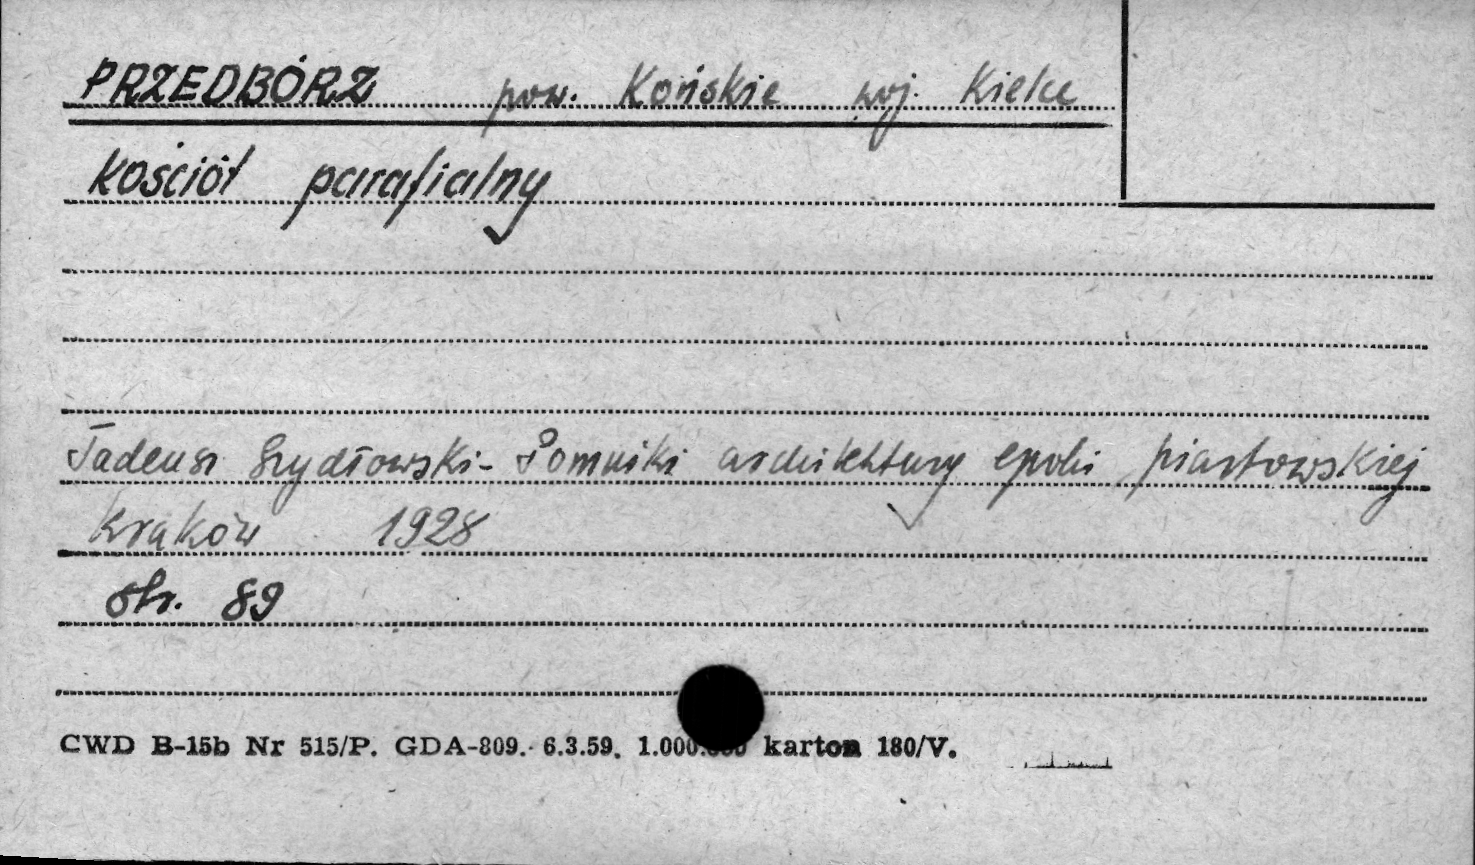 PRZEDBÓRZ pow. Końskie woj. Kielce
kościół parafialny
Tadeusz Szydłowski - Pomniki architektury epoki piastowskiej
Kraków 1928
str. 89
CWD B-15b Nr 515/P. GDA-809. 6.3.59. 1.000.000 karton 180/V.